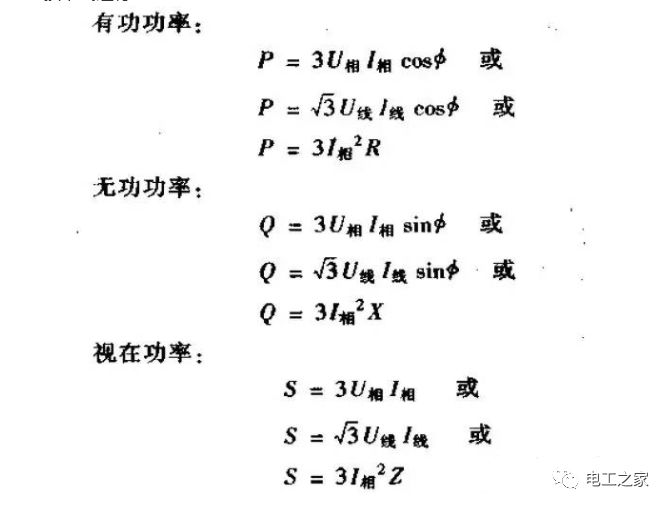 有功功率：
P = 3U相 I相 cosϕ 或
P = √3 U线 I线 cosϕ 或
P = 3I相²R
无功功率：
Q = 3U相 I相 sinϕ 或
Q = √3 U线 I线 sinϕ 或
Q = 3I相²X
视在功率：
S = 3U相 I相 或
S = √3 U线 I线 或
S = 3I相²Z
电工之家